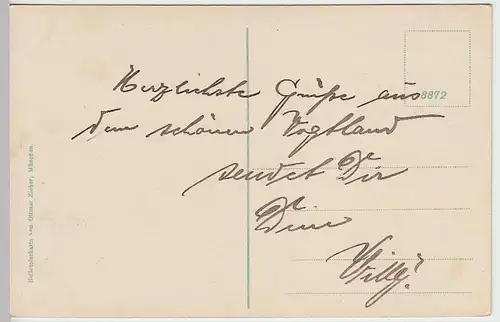 Herzlichste Grüße aus
dem schönen Vogtland
sendet Dir
Deine
Willy.
8872
Ottmar Zieher, München.